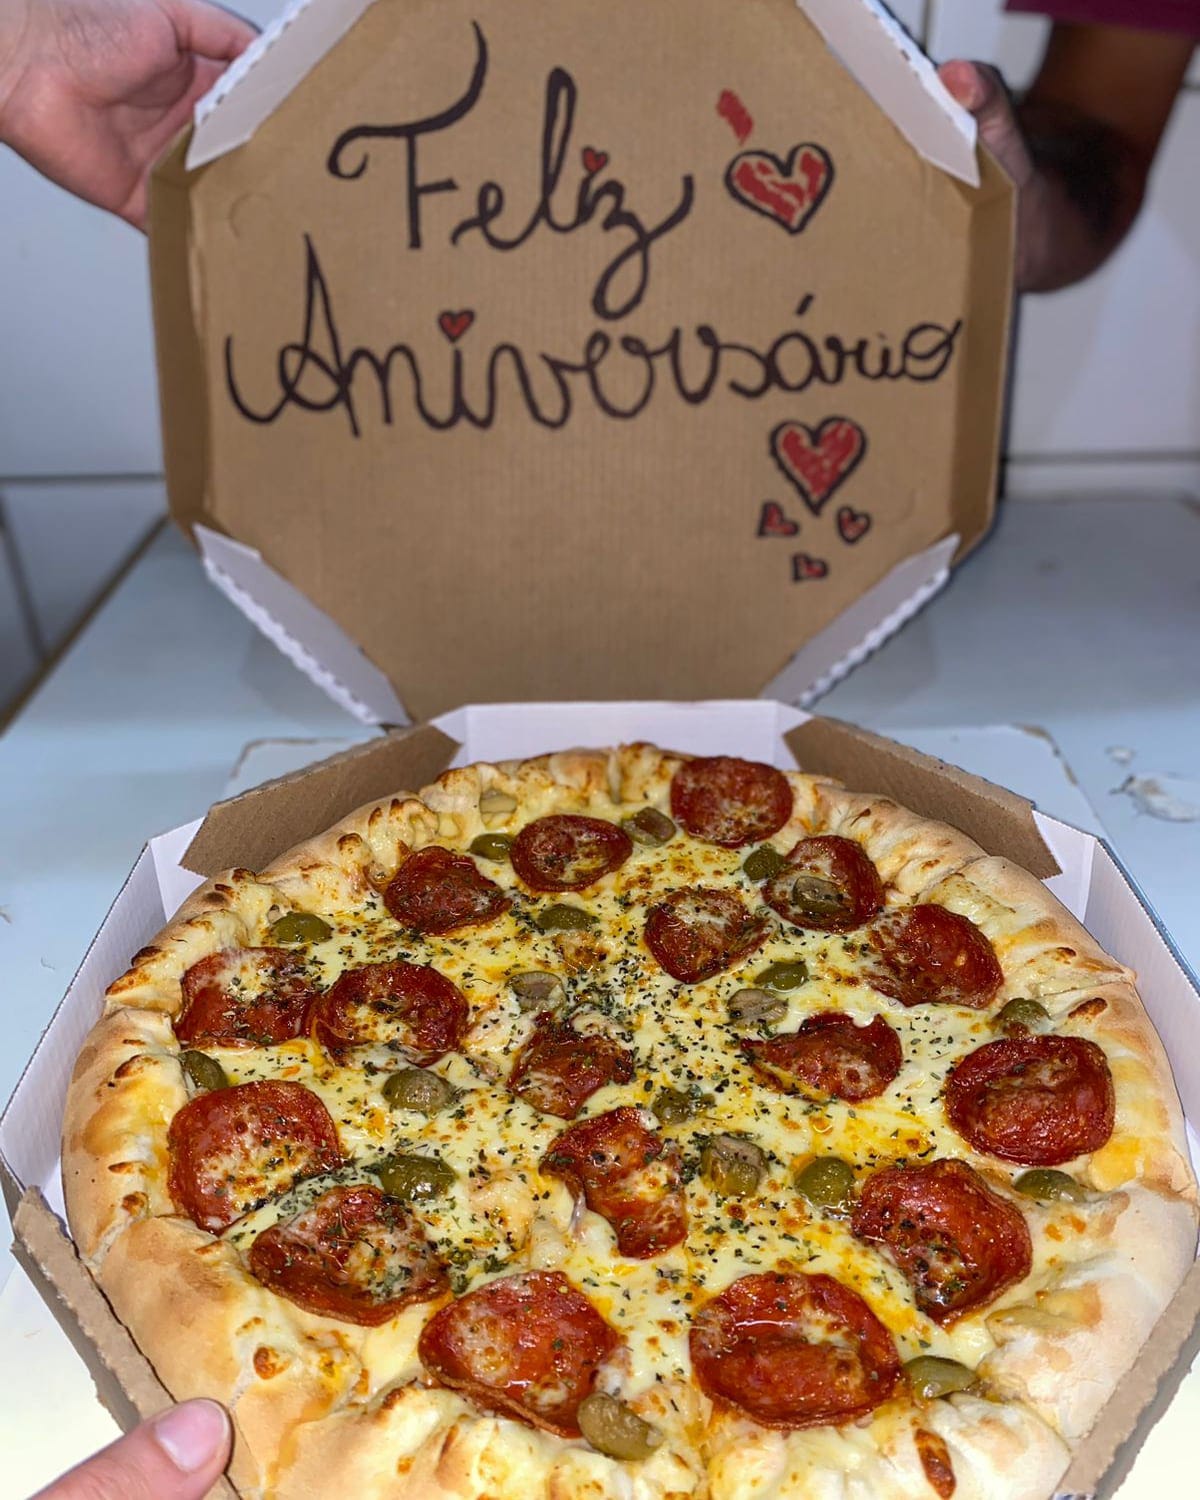 Feliz
Aniversário